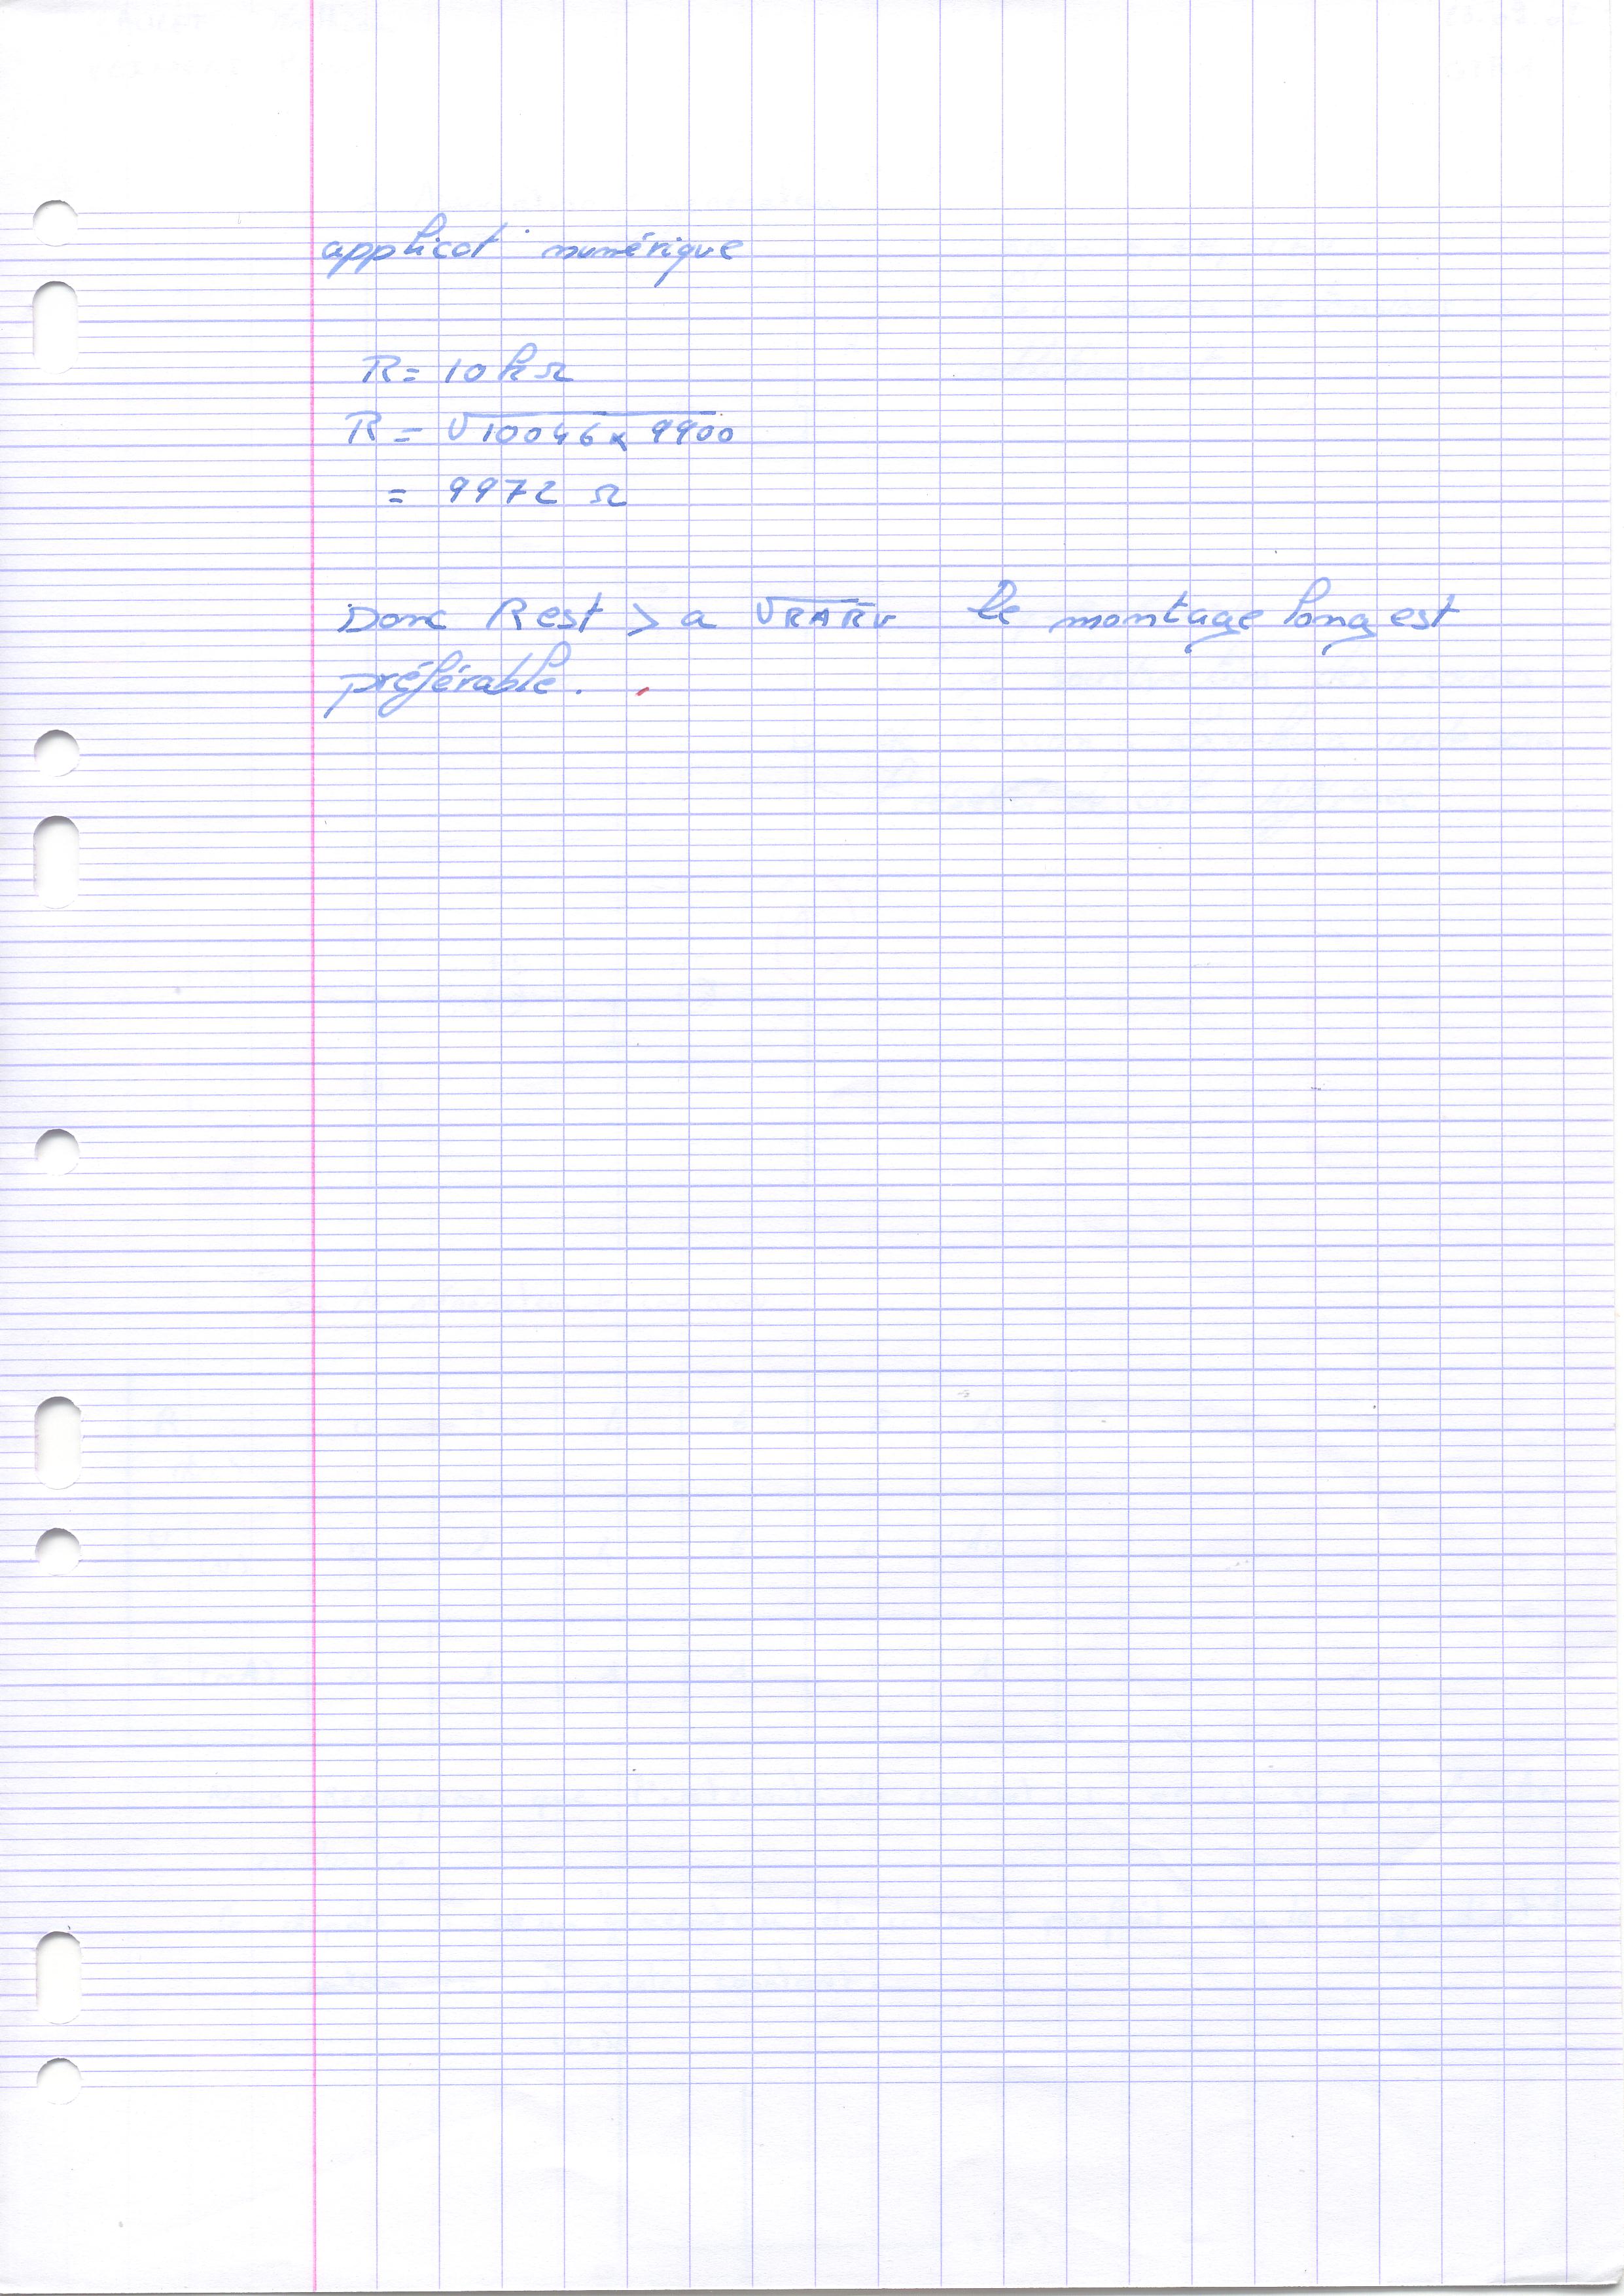 applicat° numérique
R = 10 kΩ
R = √10046 x 9900
= 9972 Ω
Donc R est > a √RARV le montage long est
préférable.